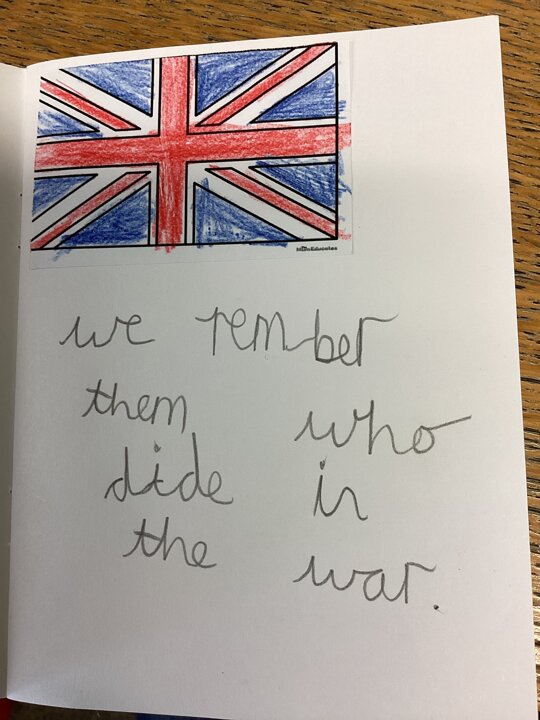 we rember
them who
dide in
the war.